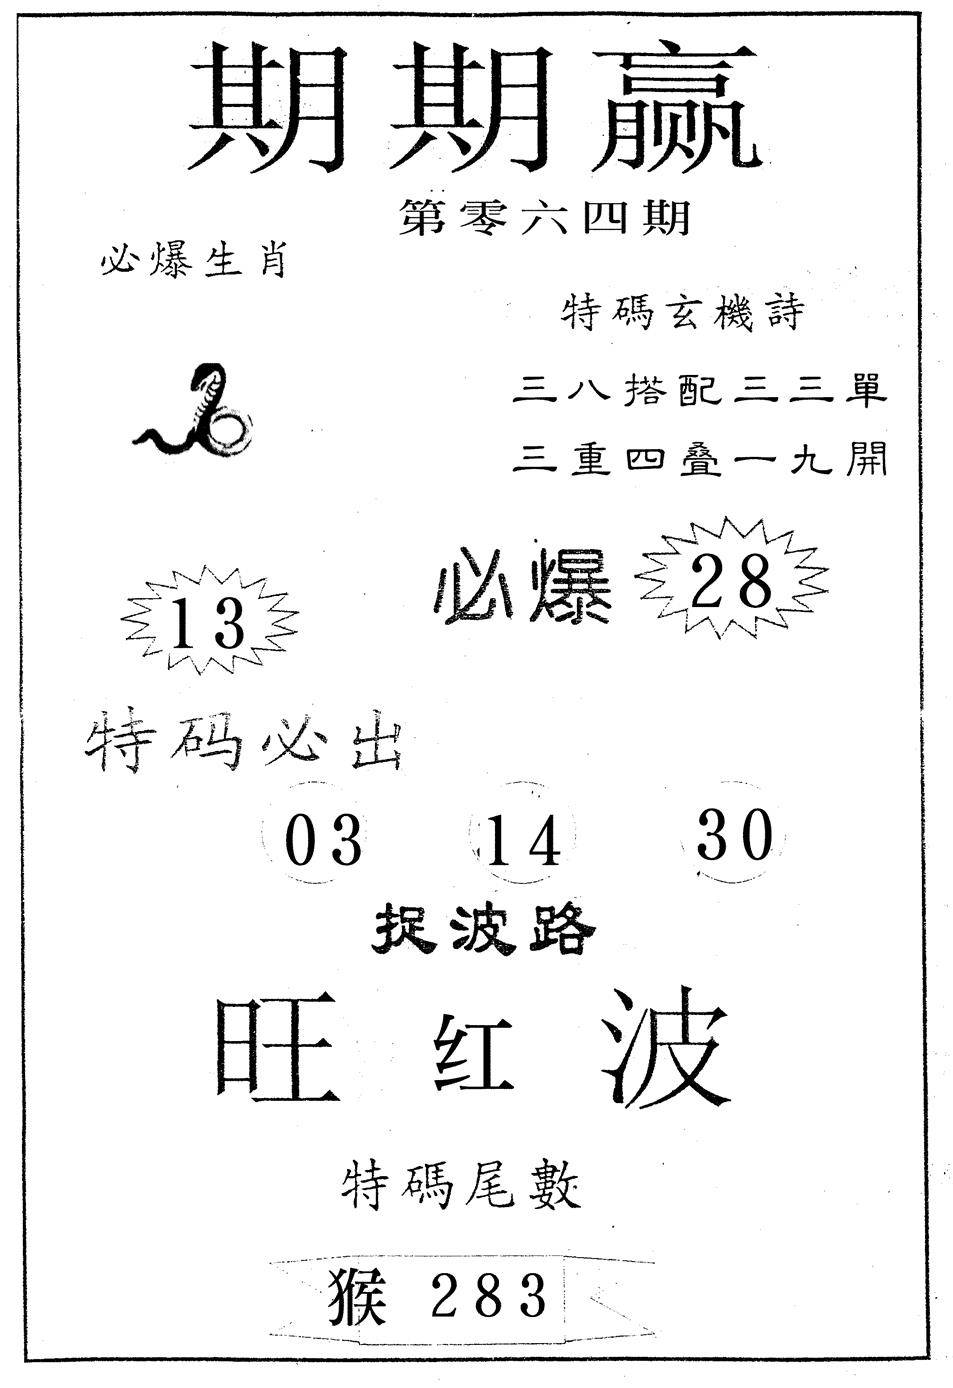 期期赢
第零六四期
必爆生肖
特碼玄機詩
三八搭配三三單
三重四叠一九開
必爆 28
13
特码必出
03 14 30
捉波路
旺红波
特碼尾數
猴 283